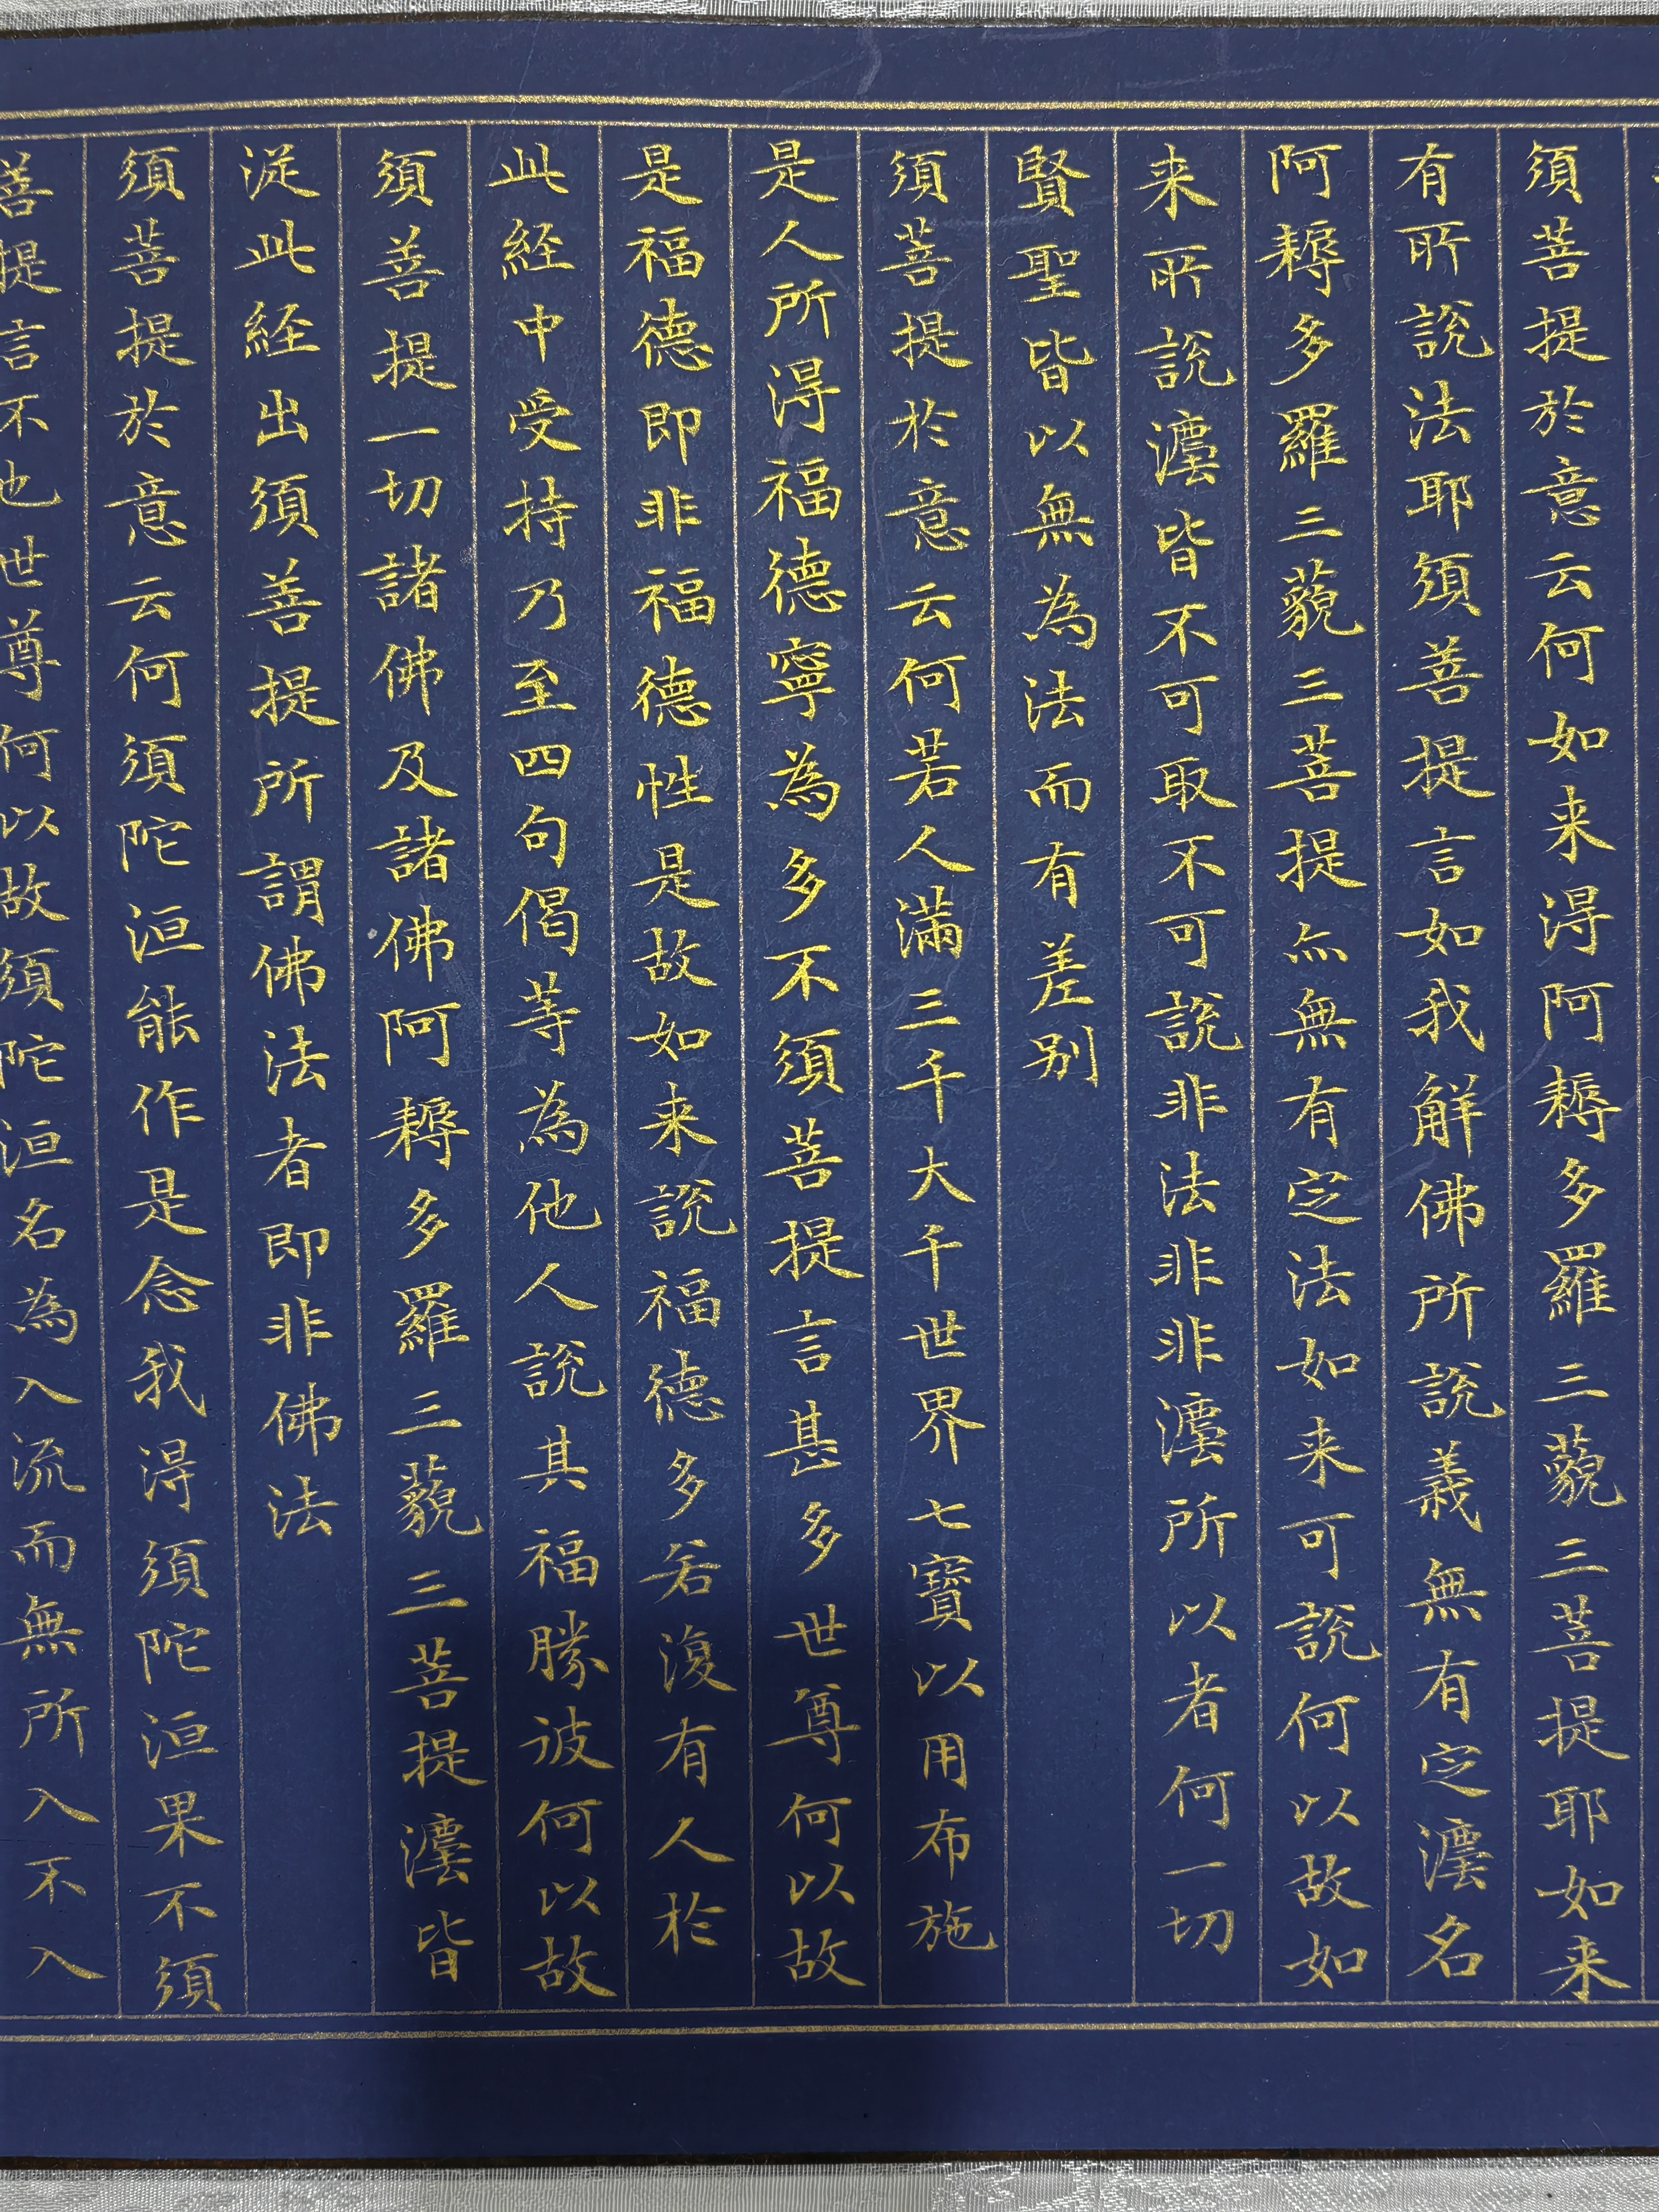 須菩提於意云何如来淂阿耨多羅三藐三菩提耶如来
有所說法耶須菩提言如我解佛所說義無有定灋名
阿耨多羅三藐三菩提亦無有定法如来可說何以故如
来所說灋皆不可取不可說非法非非灋所以者何一切
賢聖皆以無為法而有差别
須菩提於意云何若人滿三千大千世界七寶以用布施
是人所淂福德寧為多不須菩提言甚多世尊何以故
是福德即非福德性是故如来說福德多若復有人於
此経中受持乃至四句偈等為他人說其福勝彼何以故
須菩提一切諸佛及諸佛阿耨多羅三藐三菩提灋皆
従此経出須菩提所謂佛法者即非佛法
須菩提於意云何須陀洹能作是念我淂須陀洹果不須
菩提言不也世尊何以故須陀洹名為入流而無所入不入